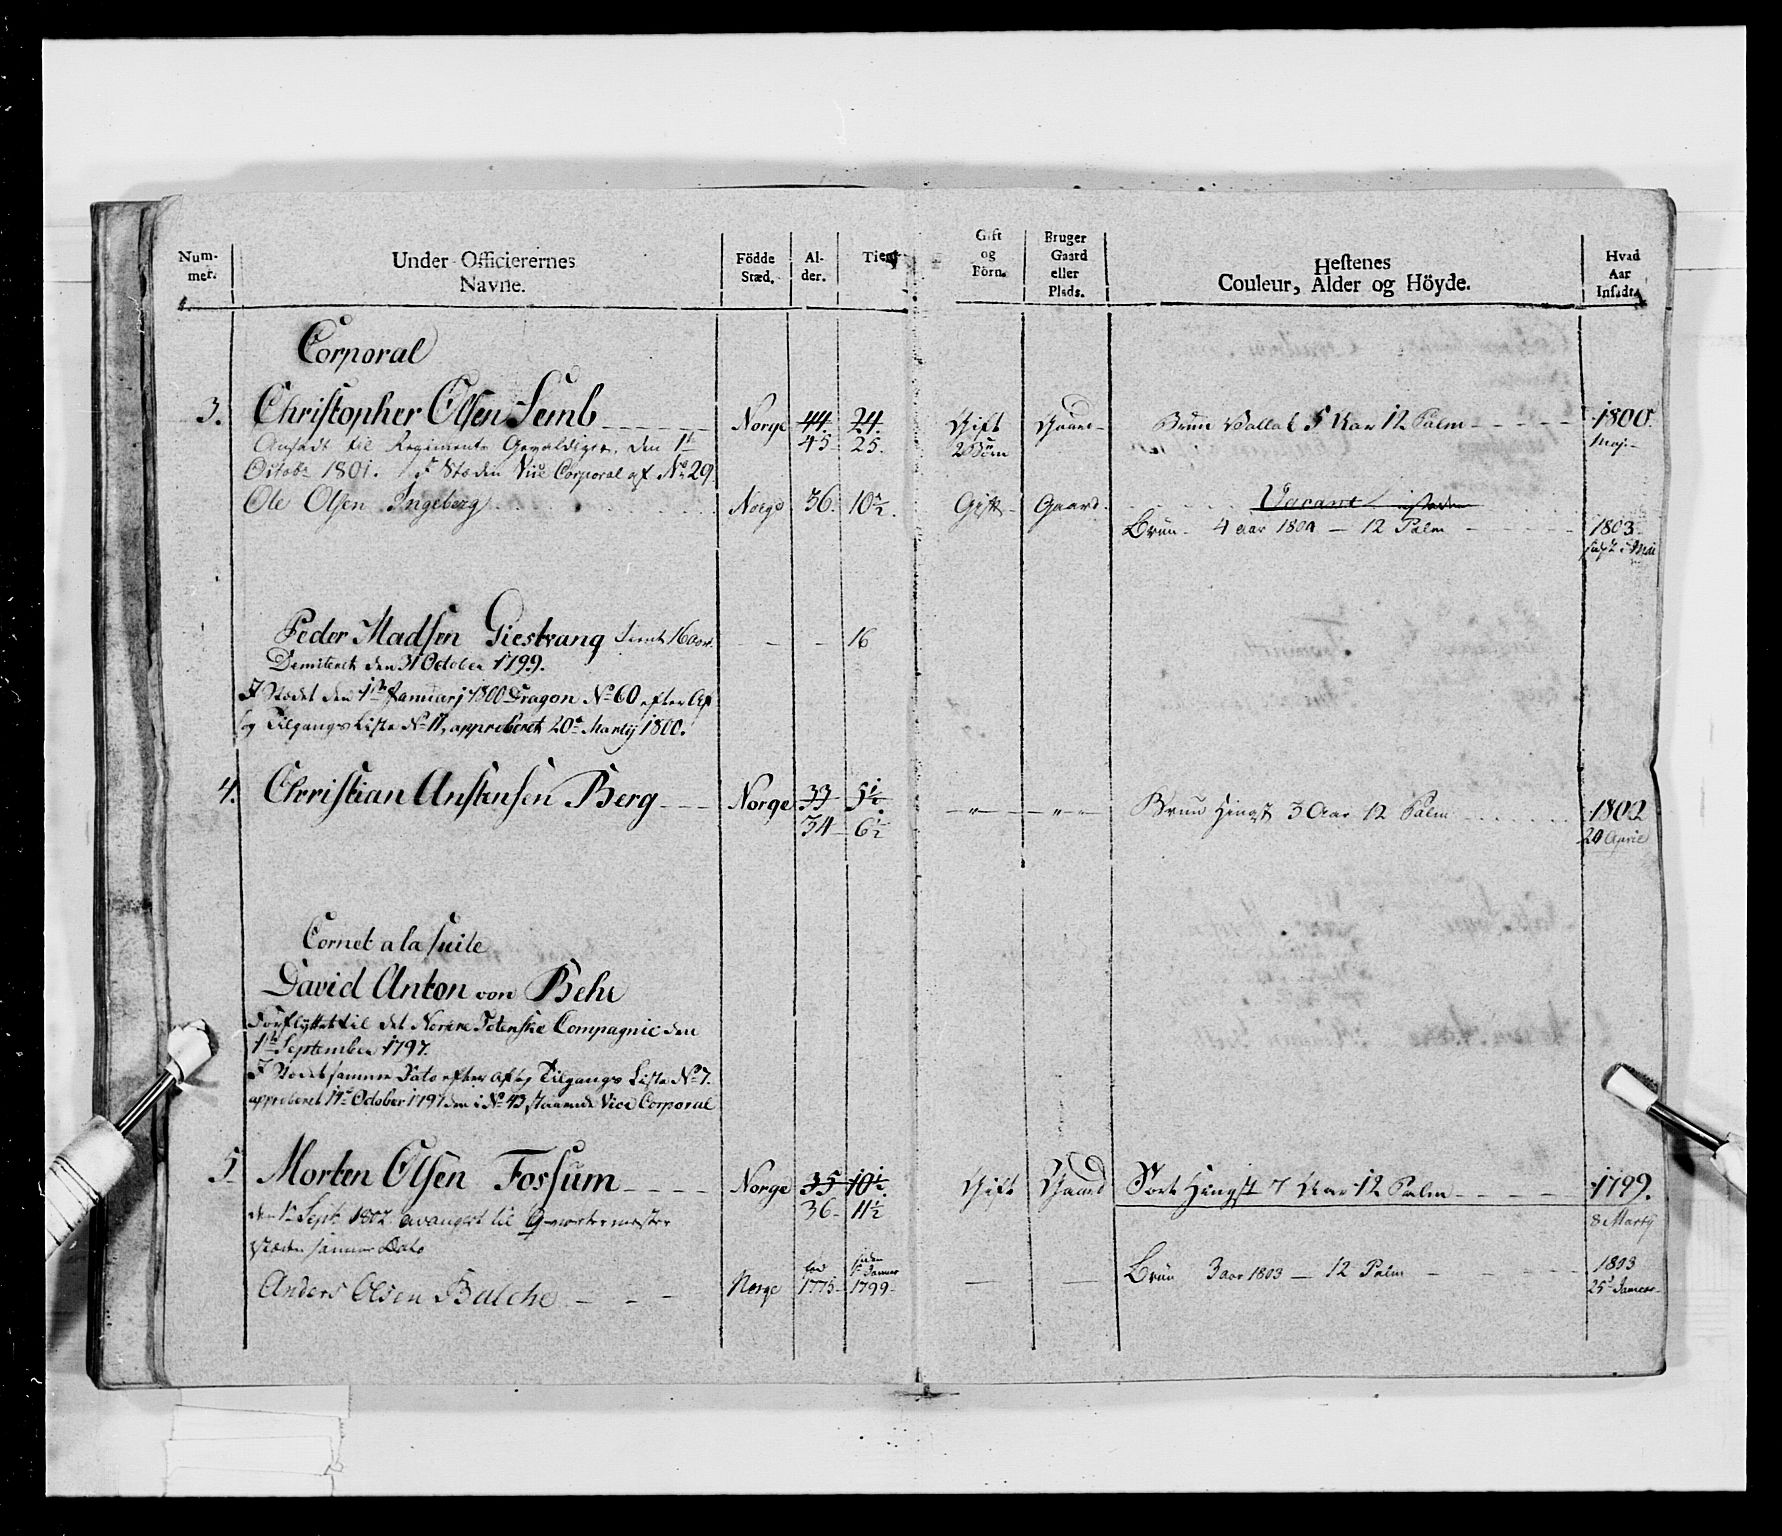 Num-
mer.
Under-Officierernes
Navne.
Födde
Stæd.
Al-
der.
Tient
Gift
og
Börn.
Bruger
Gaard
eller
Plads.
Hestenes
Couleur, Alder og Höyde.
Hvad
Aar
Insadt.
Corporal
3. Christopher Olsen Semb Norge 44 24. Gift Gaard Bruun Vallak 5 Aar 12 Palm 1800
Ansadt til Regiments Gevaldiger, den 1te 45 25. 2 Börn Maj.
Octobr 1801. I Stæden Vice Corporal af No 29.
Ole Olsen Ingeberg Norge 36. 10½. Gift Gaard. Vacant
Bruun 4 aar 1801 — 12 Palm 1803
Peder Madsen Giestvang tient 16 aar. 16
Demiteret den 31 October 1799.
I Stædet den 1te Januarj 1800 Dragon No 60 efter Af
og Tilgangs Liste No 11, approberet 20de Martij 1800.
4. Christian Anstensen Berg Norge 33 5½ Bruun Hingst 3 Aar 12 Palm 1802
34 6½ 20 April
Cornet a la suite
David Anton von Behr
Forflyttet til det Norere Totenske Compagnie den
1te September 1797.
I Stædet samme Dato efter Af og Tilgangs Liste No 7.
approberet 14de October 1797 den i No 43 staaende Vice Corporal
5 Morten Olsen Fossum Norge 35 10½. Gift Gaard Sort Hingst 7 Aar 12 Palm 1799.
36 11½ 8 Martij
den 1te Septr 1802 avangert til Qvartermester
Stæden samme Dato
Anders Olsen Balche Norge fød 1775 siden 1te Januar 1799 Bruun 3 aar 1803 — 12 Palm 1803
25de Januar